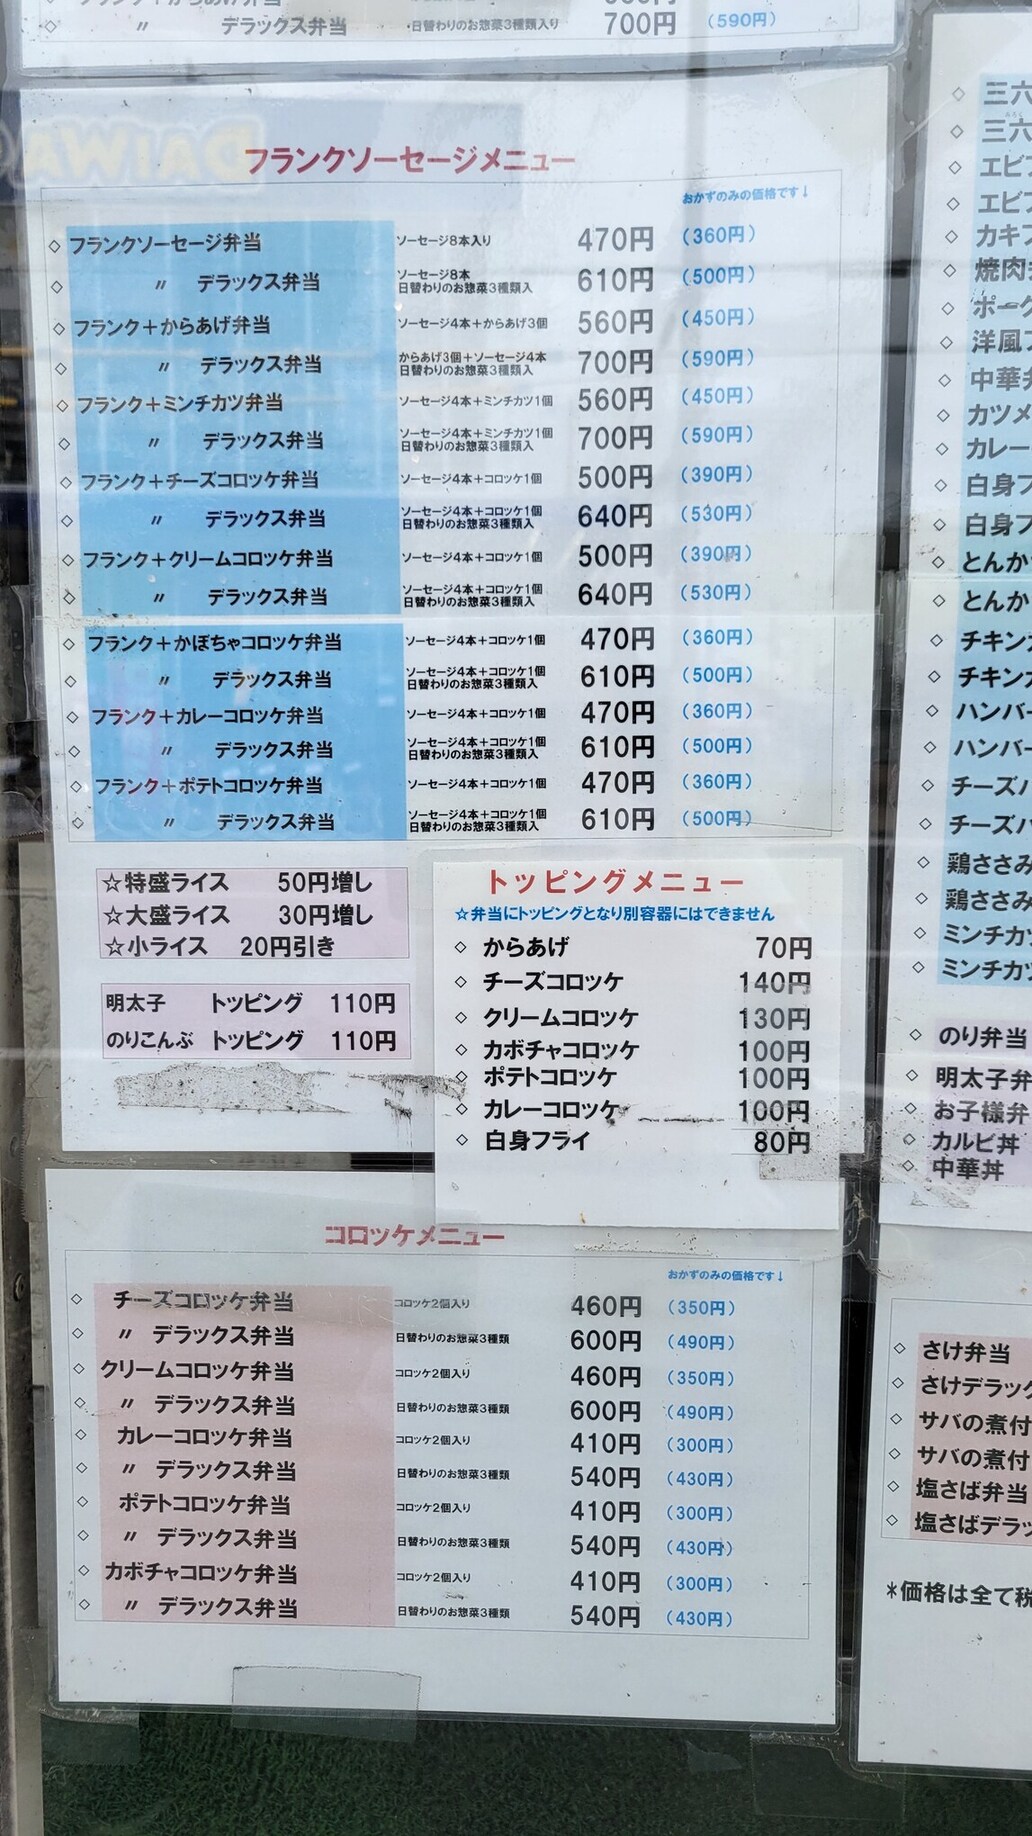 〃 デラックス弁当 日替わりのお惣菜3種類入り 700円 (590円)
フランクソーセージメニュー
おかずのみの価格です↓
◇ フランクソーセージ弁当 ソーセージ8本入り 470円 (360円)
◇ 〃 デラックス弁当 ソーセージ8本 日替わりのお惣菜3種類入 610円 (500円)
◇ フランク+からあげ弁当 ソーセージ4本+からあげ3個 560円 (450円)
◇ 〃 デラックス弁当 からあげ3個+ソーセージ4本 日替わりのお惣菜3種類入 700円 (590円)
◇ フランク+ミンチカツ弁当 ソーセージ4本+ミンチカツ1個 560円 (450円)
◇ 〃 デラックス弁当 ソーセージ4本+ミンチカツ1個 日替わりのお惣菜3種類入 700円 (590円)
◇ フランク+チーズコロッケ弁当 ソーセージ4本+コロッケ1個 500円 (390円)
◇ 〃 デラックス弁当 ソーセージ4本+コロッケ1個 日替わりのお惣菜3種類入 640円 (530円)
◇ フランク+クリームコロッケ弁当 ソーセージ4本+コロッケ1個 500円 (390円)
◇ 〃 デラックス弁当 ソーセージ4本+コロッケ1個 日替わりのお惣菜3種類入 640円 (530円)
◇ フランク+かぼちゃコロッケ弁当 ソーセージ4本+コロッケ1個 470円 (360円)
◇ 〃 デラックス弁当 ソーセージ4本+コロッケ1個 日替わりのお惣菜3種類入 610円 (500円)
◇ フランク+カレーコロッケ弁当 ソーセージ4本+コロッケ1個 470円 (360円)
◇ 〃 デラックス弁当 ソーセージ4本+コロッケ1個 日替わりのお惣菜3種類入 610円 (500円)
◇ フランク+ポテトコロッケ弁当 ソーセージ4本+コロッケ1個 470円 (360円)
◇ 〃 デラックス弁当 ソーセージ4本+コロッケ1個 日替わりのお惣菜3種類入 610円 (500円)
☆特盛ライス 50円増し
☆大盛ライス 30円増し
☆小ライス 20円引き
明太子 トッピング 110円
のりこんぶ トッピング 110円
トッピングメニュー
☆弁当にトッピングとなり別容器にはできません
◇ からあげ 70円
◇ チーズコロッケ 140円
◇ クリームコロッケ 130円
◇ カボチャコロッケ 100円
◇ ポテトコロッケ 100円
◇ カレーコロッケ 100円
◇ 白身フライ 80円
コロッケメニュー
おかずのみの価格です↓
◇ チーズコロッケ弁当 コロッケ2個入り 460円 (350円)
◇ 〃 デラックス弁当 日替わりのお惣菜3種類 600円 (490円)
◇ クリームコロッケ弁当 コロッケ2個入り 460円 (350円)
◇ 〃 デラックス弁当 日替わりのお惣菜3種類 600円 (490円)
◇ カレーコロッケ弁当 コロッケ2個入り 410円 (300円)
◇ 〃 デラックス弁当 日替わりのお惣菜3種類 540円 (430円)
◇ ポテトコロッケ弁当 コロッケ2個入り 410円 (300円)
◇ 〃 デラックス弁当 日替わりのお惣菜3種類 540円 (430円)
◇ カボチャコロッケ弁当 コロッケ2個入り 410円 (300円)
◇ 〃 デラックス弁当 日替わりのお惣菜3種類 540円 (430円)
◇ 三六
◇ 三六
◇ エビフ
◇ エビフ
◇ カキフ
◇ 焼肉
◇ ポーク
◇ 洋風フ
◇ 中華弁
◇ カツメ
◇ カレー
◇ 白身フ
◇ 白身フ
◇ とんか
◇ とんか
◇ チキン
◇ チキン
◇ ハンバー
◇ ハンバー
◇ チーズハ
◇ チーズハ
◇ 鶏ささみ
◇ 鶏ささみ
◇ ミンチカ
◇ ミンチカ
◇ のり弁当
◇ 明太子弁
◇ お子様弁
◇ カルビ丼
◇ 中華丼
◇ さけ弁当
◇ さけデラック
◇ サバの煮付
◇ サバの煮付
◇ 塩さば弁当
◇ 塩さばデラッ
*価格は全て税